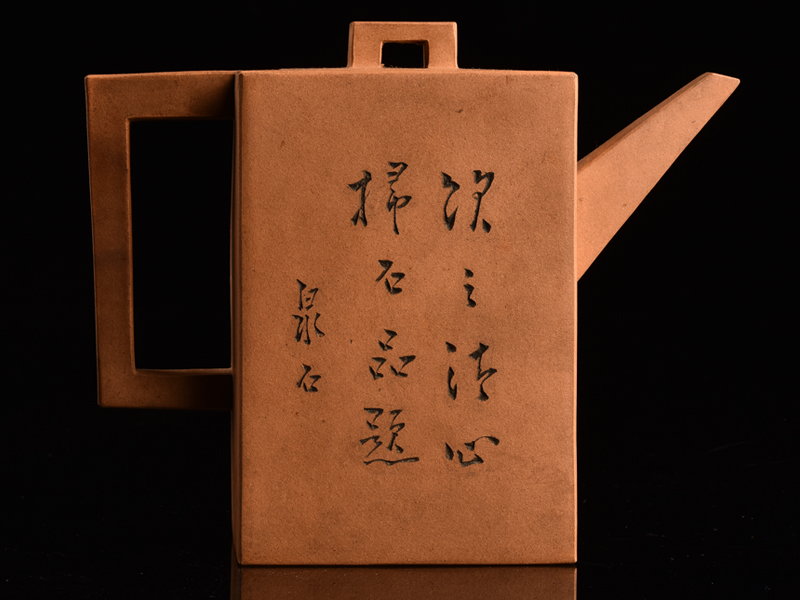 飲之清心
掃石品題
泉石